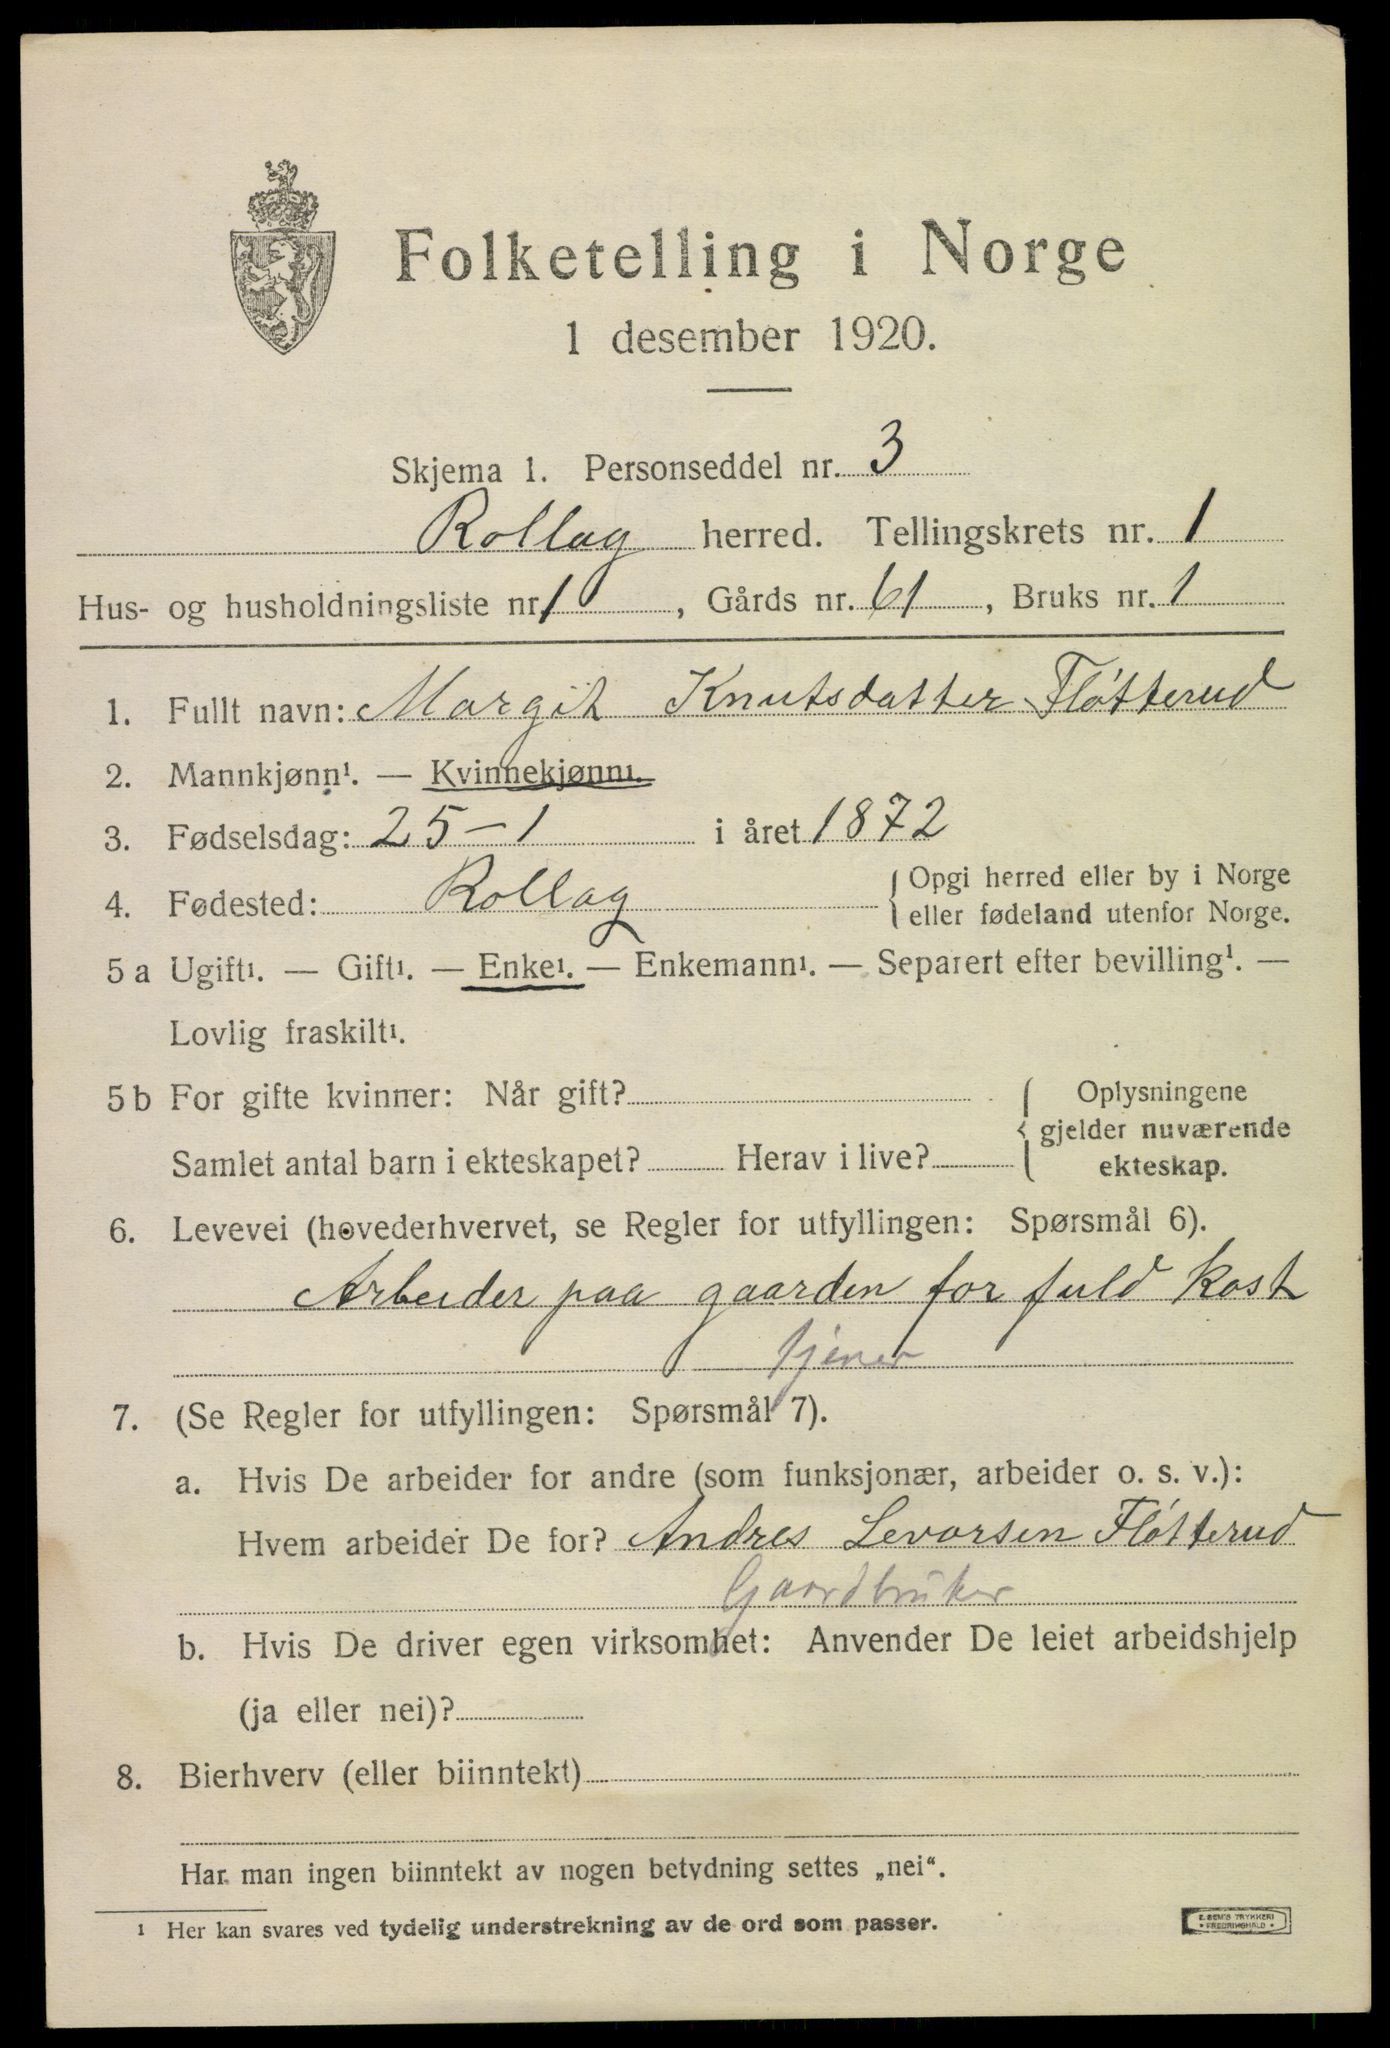 Folketelling i Norge
1 desember 1920.
Skjema 1. Personseddel nr. 3
Rollag herred. Tellingskrets nr. 1
Hus- og husholdningsliste nr. 1, Gårds nr. 61, Bruks nr. 1
1. Fullt navn: Margit Knutsdatter Fløtterud
2. Mannkjønn¹. — Kvinnekjønn¹.
3. Fødselsdag: 25-1 i året 1872
4. Fødested: Rollag { Opgi herred eller by i Norge
eller fødeland utenfor Norge.
5 a Ugift¹. — Gift¹. — Enke¹. — Enkemann¹. — Separert efter bevilling¹. —
Lovlig fraskilt¹.
5 b For gifte kvinner: Når gift? { Oplysningene
gjelder nuværende
Samlet antal barn i ekteskapet? Herav i live? ekteskap.
6. Levevei (hovederhvervet, se Regler for utfyllingen: Spørsmål 6).
Arbeider paa gaarden for fuld kost
tjener
7. (Se Regler for utfyllingen: Spørsmål 7).
a. Hvis De arbeider for andre (som funksjonær, arbeider o. s. v.):
Hvem arbeider De for? Andres Levorsen Fløtterud
Gaardbruker
b. Hvis De driver egen virksomhet: Anvender De leiet arbeidshjelp
(ja eller nei)?
8. Bierhverv (eller biinntekt)
Har man ingen biinntekt av nogen betydning settes „nei“.
¹ Her kan svares ved tydelig understrekning av de ord som passer.
E. SEM'S TRYKKERI
• FREDRIKSHALD •